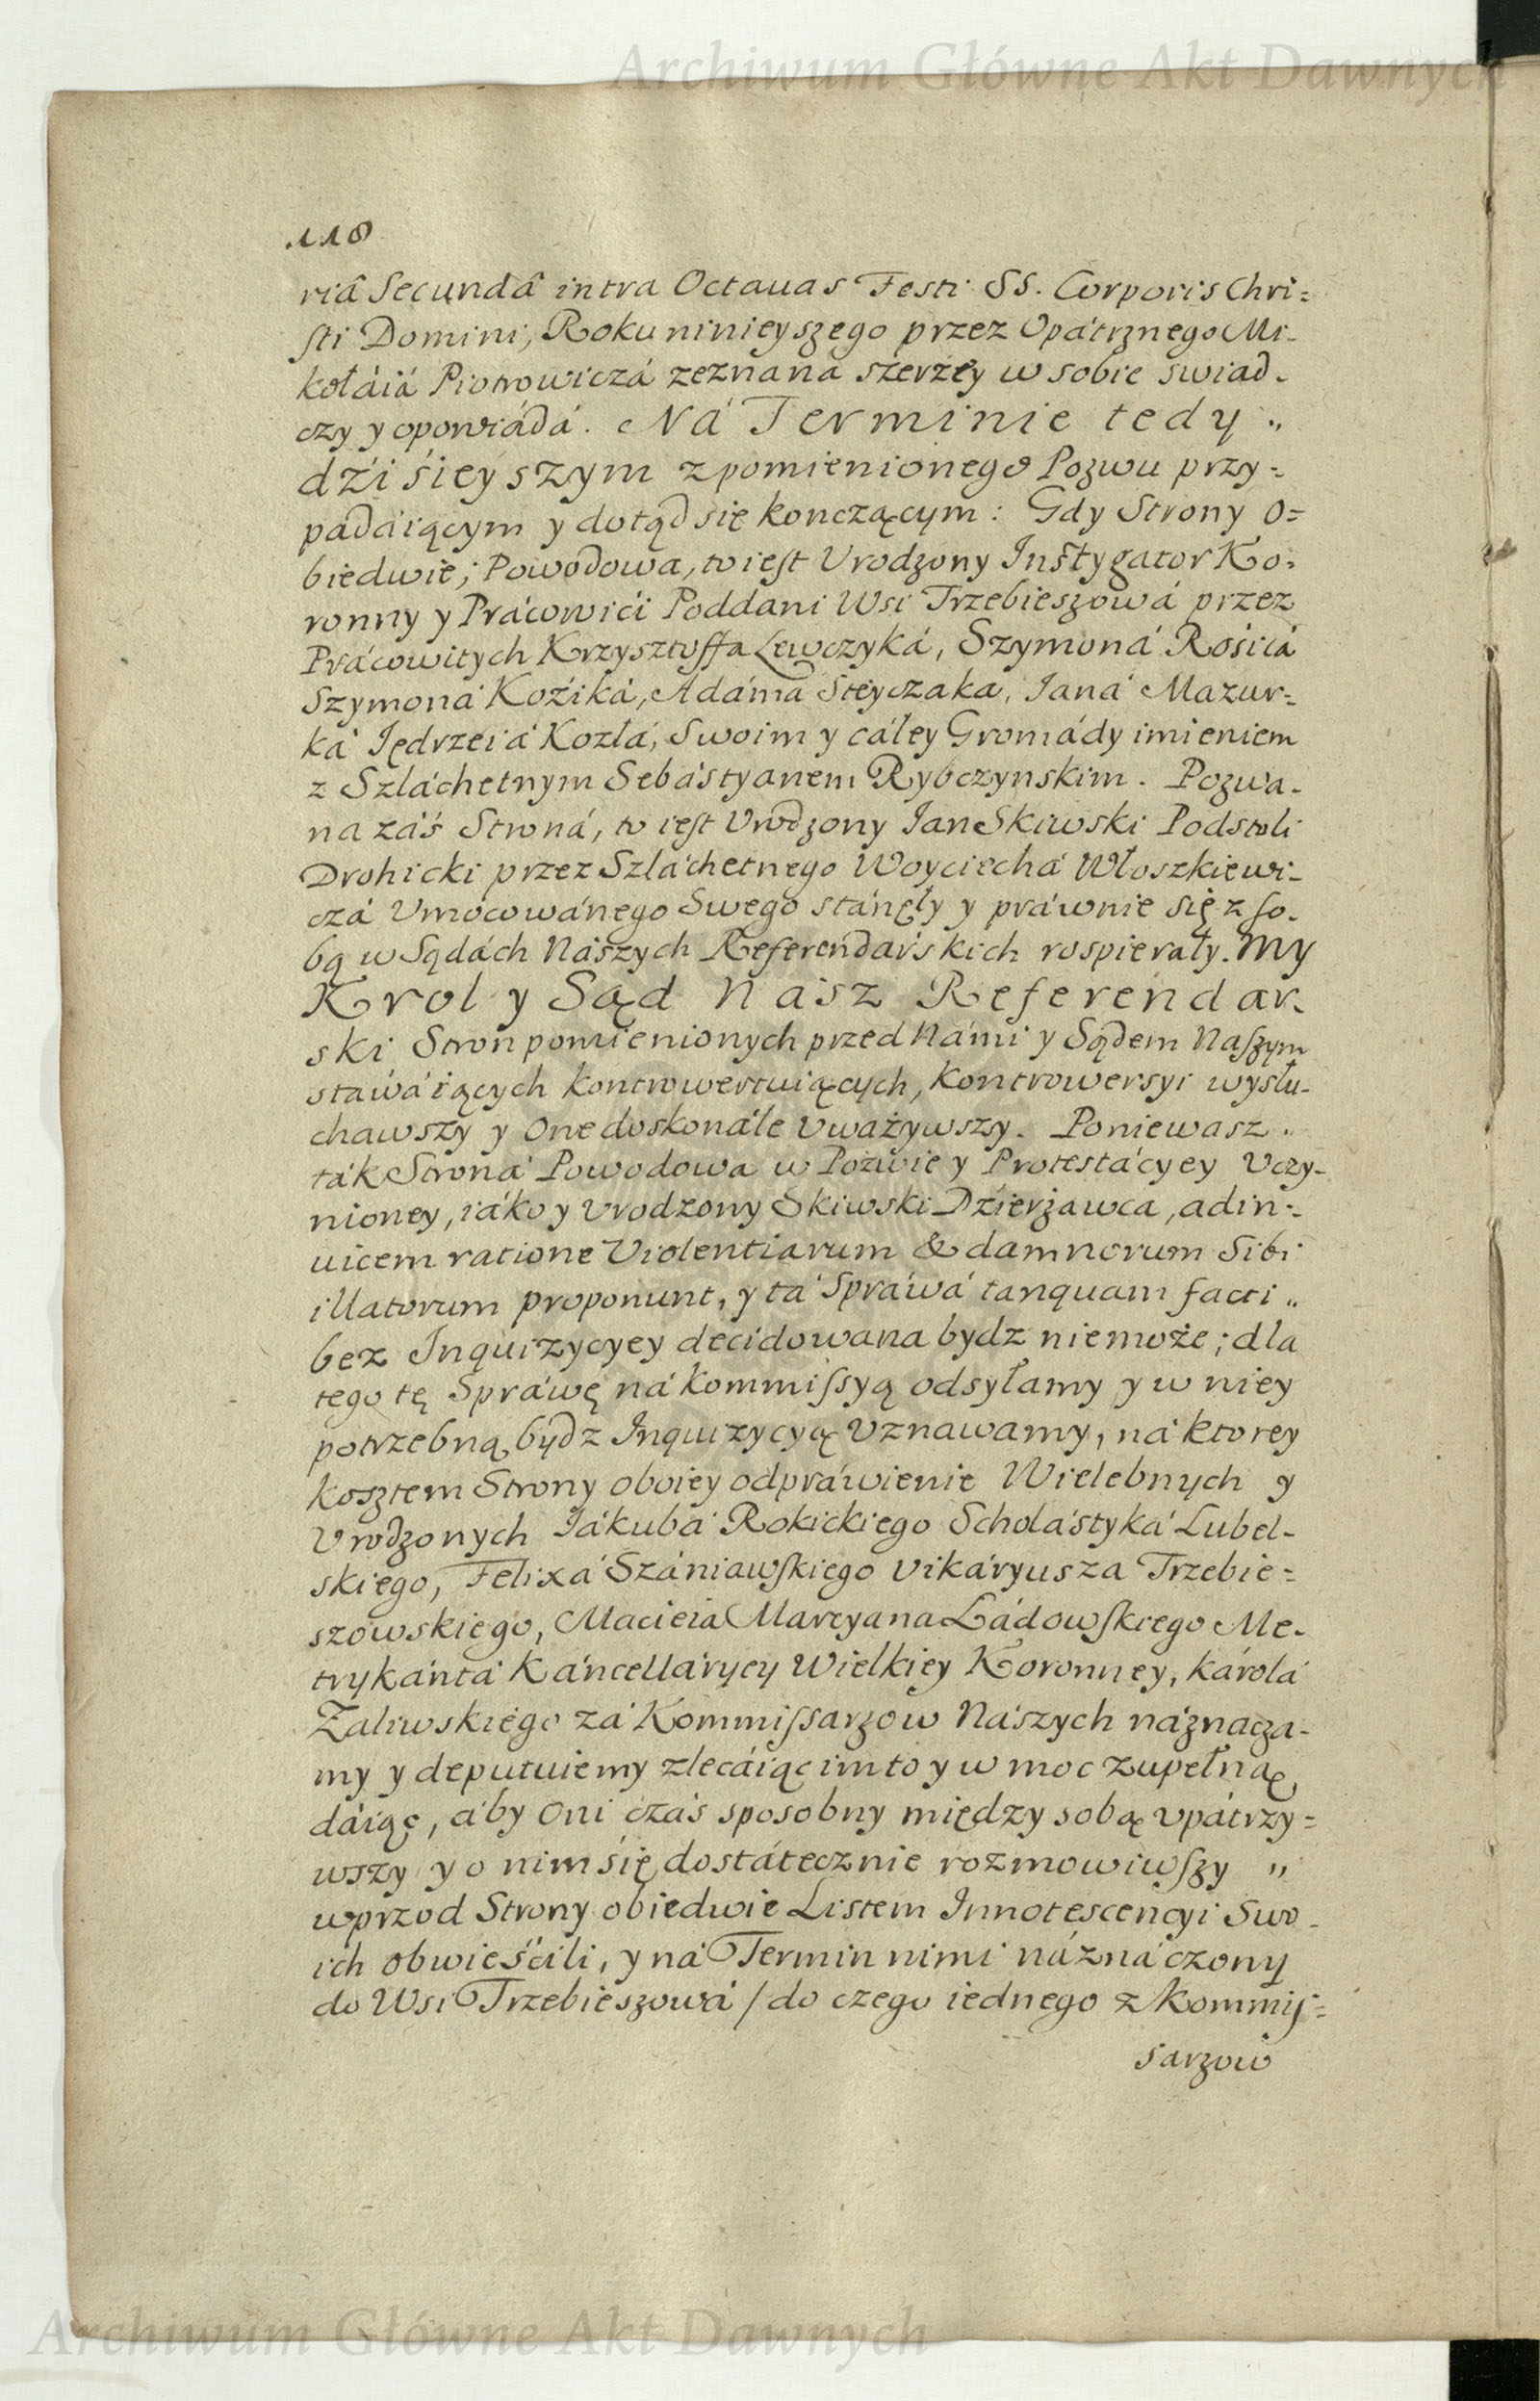 Archiwum Główne Akt Dawnych
118
riâ Secundâ intra Octauas Festi SS. Corporis Chri=
sti Domini, Roku ninieyszego przez Opátrznego Mi-
kołáiá Piotrowiczá zeznana szerzey w sobie swiad-
czy y opowiádá. Ná Terminie tedy „
dźiśieyszym z pomienionego Pozwu przy=
padaiącym y dotąd się konczącym: Gdy Strony o=
biedwie; Powodowa, to iest Vrodzony Instygator Ko-
ronny y Prácowići Poddani Wsi Trzebieszowá przez
Prácowitych Krzysztoffa Lewczyká, Szymoná Rośićá
Szymoná Koźiká, Adámá Steyczaka, Ianá Mazur=
ká Iędrzeiá Kozłá, Swoim y cáłey Gromády imieniem
z Szláchetnym Sebástyanem Rybczynskim. Pozwa-
na záś Stroná, to iest Vrodzony Ian Skiwski Podstoli
Drohicki przez Szláchetnego Woyciechá Włoszkiewi-
czá Vmocowánego Swego stánęły y práwnie się z so-
bą w Sądách Nászych Referendárskich rospierały. My
Krol y Sąd Nász Referendar-
ski Stron pomienionych przed Námi y Sądem Naszym
stawáiących kontrowertuiących, Kontrowersyi wysłu-
chawszy y One doskonále Vważywszy. Poniewasz „
ták Stroná Powodowa w Pozwie y Protestácyey Vczy-
nioney, iáko y Vrodzony Skiwski Dzierżawca, adin-
uicem ratione Violentiarum & damnorum Sibi
illatorum proponunt, y tá Spráwá tanquam facti „
bez Inquizycyey decidowana bydz niemoże; dla
tego tę Spráwę ná Kommissyą odsyłamy y w niey
potrzebną bydz Inquizycyą Vznawamy, ná ktorey
kosztem Strony oboiey odpráwienie Wielebnych y
Vrodzonych Iákubá Rokickiego Scholástyká Lubel-
skiego, Felixá Szániawskiego Vikáryusza Trzebie=
szowskiego, Macieia Marcyana Ládowskiego Me-
trykántá Káncelláryey Wielkiey Koronney, Károlá
Zaliwskiego zá Kommissarzow Nászych náznacza-
my y deputuiemy zlecáiąc im to y w moc zupełną
dáiąc, áby Oni czás sposobny między sobą vpátrzy=
wszy y o nim się dostátecznie rozmowiwszy „
wprzod Strony obiedwie Listem Innotescencyi Swo-
ich obwieśćili, y ná Termin nimi náznáczony
do Wsi Trzebieszowá / do czego iednego z Kommis=
sarzow
Archiwum Główne Akt Dawnych